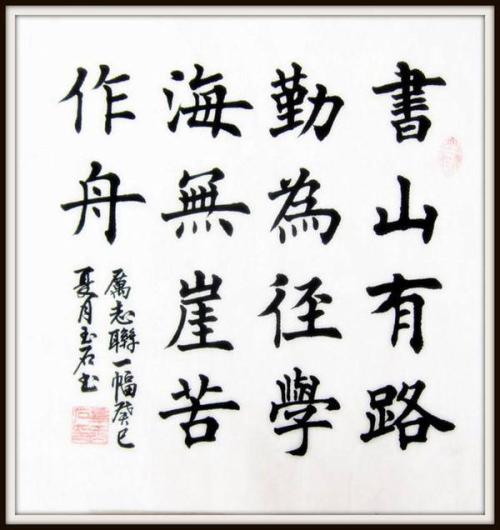 書山有路
勤為徑學
海無崖苦
作舟
厲志聯一幅癸巳
夏月玉石书